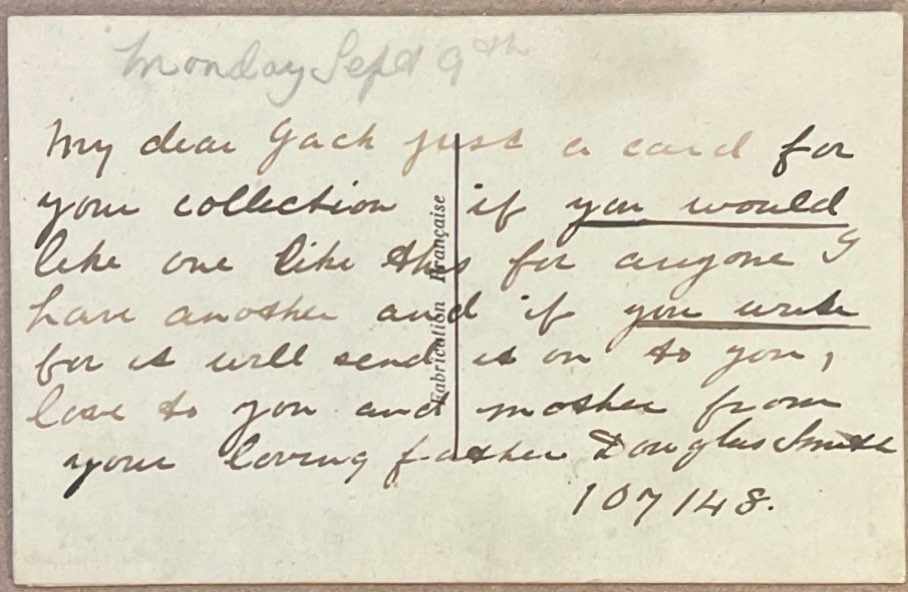 Monday Sept 9th
My dear Jack just a card for
your collection if you would
like one like this for anyone I
have another and if you write
for it will send it on to you,
love to you and mother from
your loving father Douglas Smith
107148.
Fabrication Française